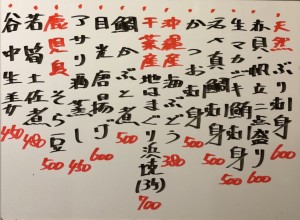 天然
赤貝・帆立二点盛り 600
生マカジキ鮪刺身 500
〆真鯛刺身 500
かつお刺身 500
沖縄産 海ぶどう 380
千葉産 地はまぐり浜焼(3ヶ) 700
鯛かぶと煮 500
目光唐揚げ
アサリ酒蒸し 600
鹿児島 そら豆 450
若筍土佐煮 500
谷中生姜 480
450